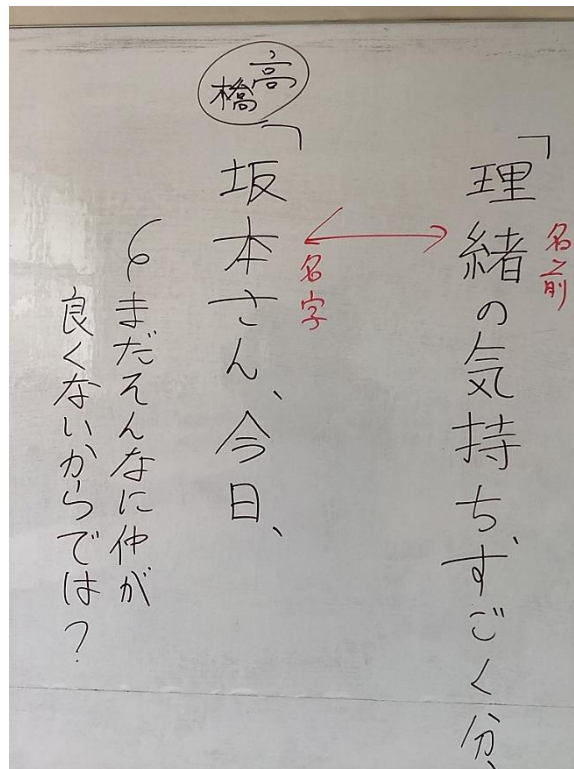 「理緒の気持ち、すごく分、
名前
名字
高橋
「坂本さん、今日、
まだそんなに仲が
良くないからでは？